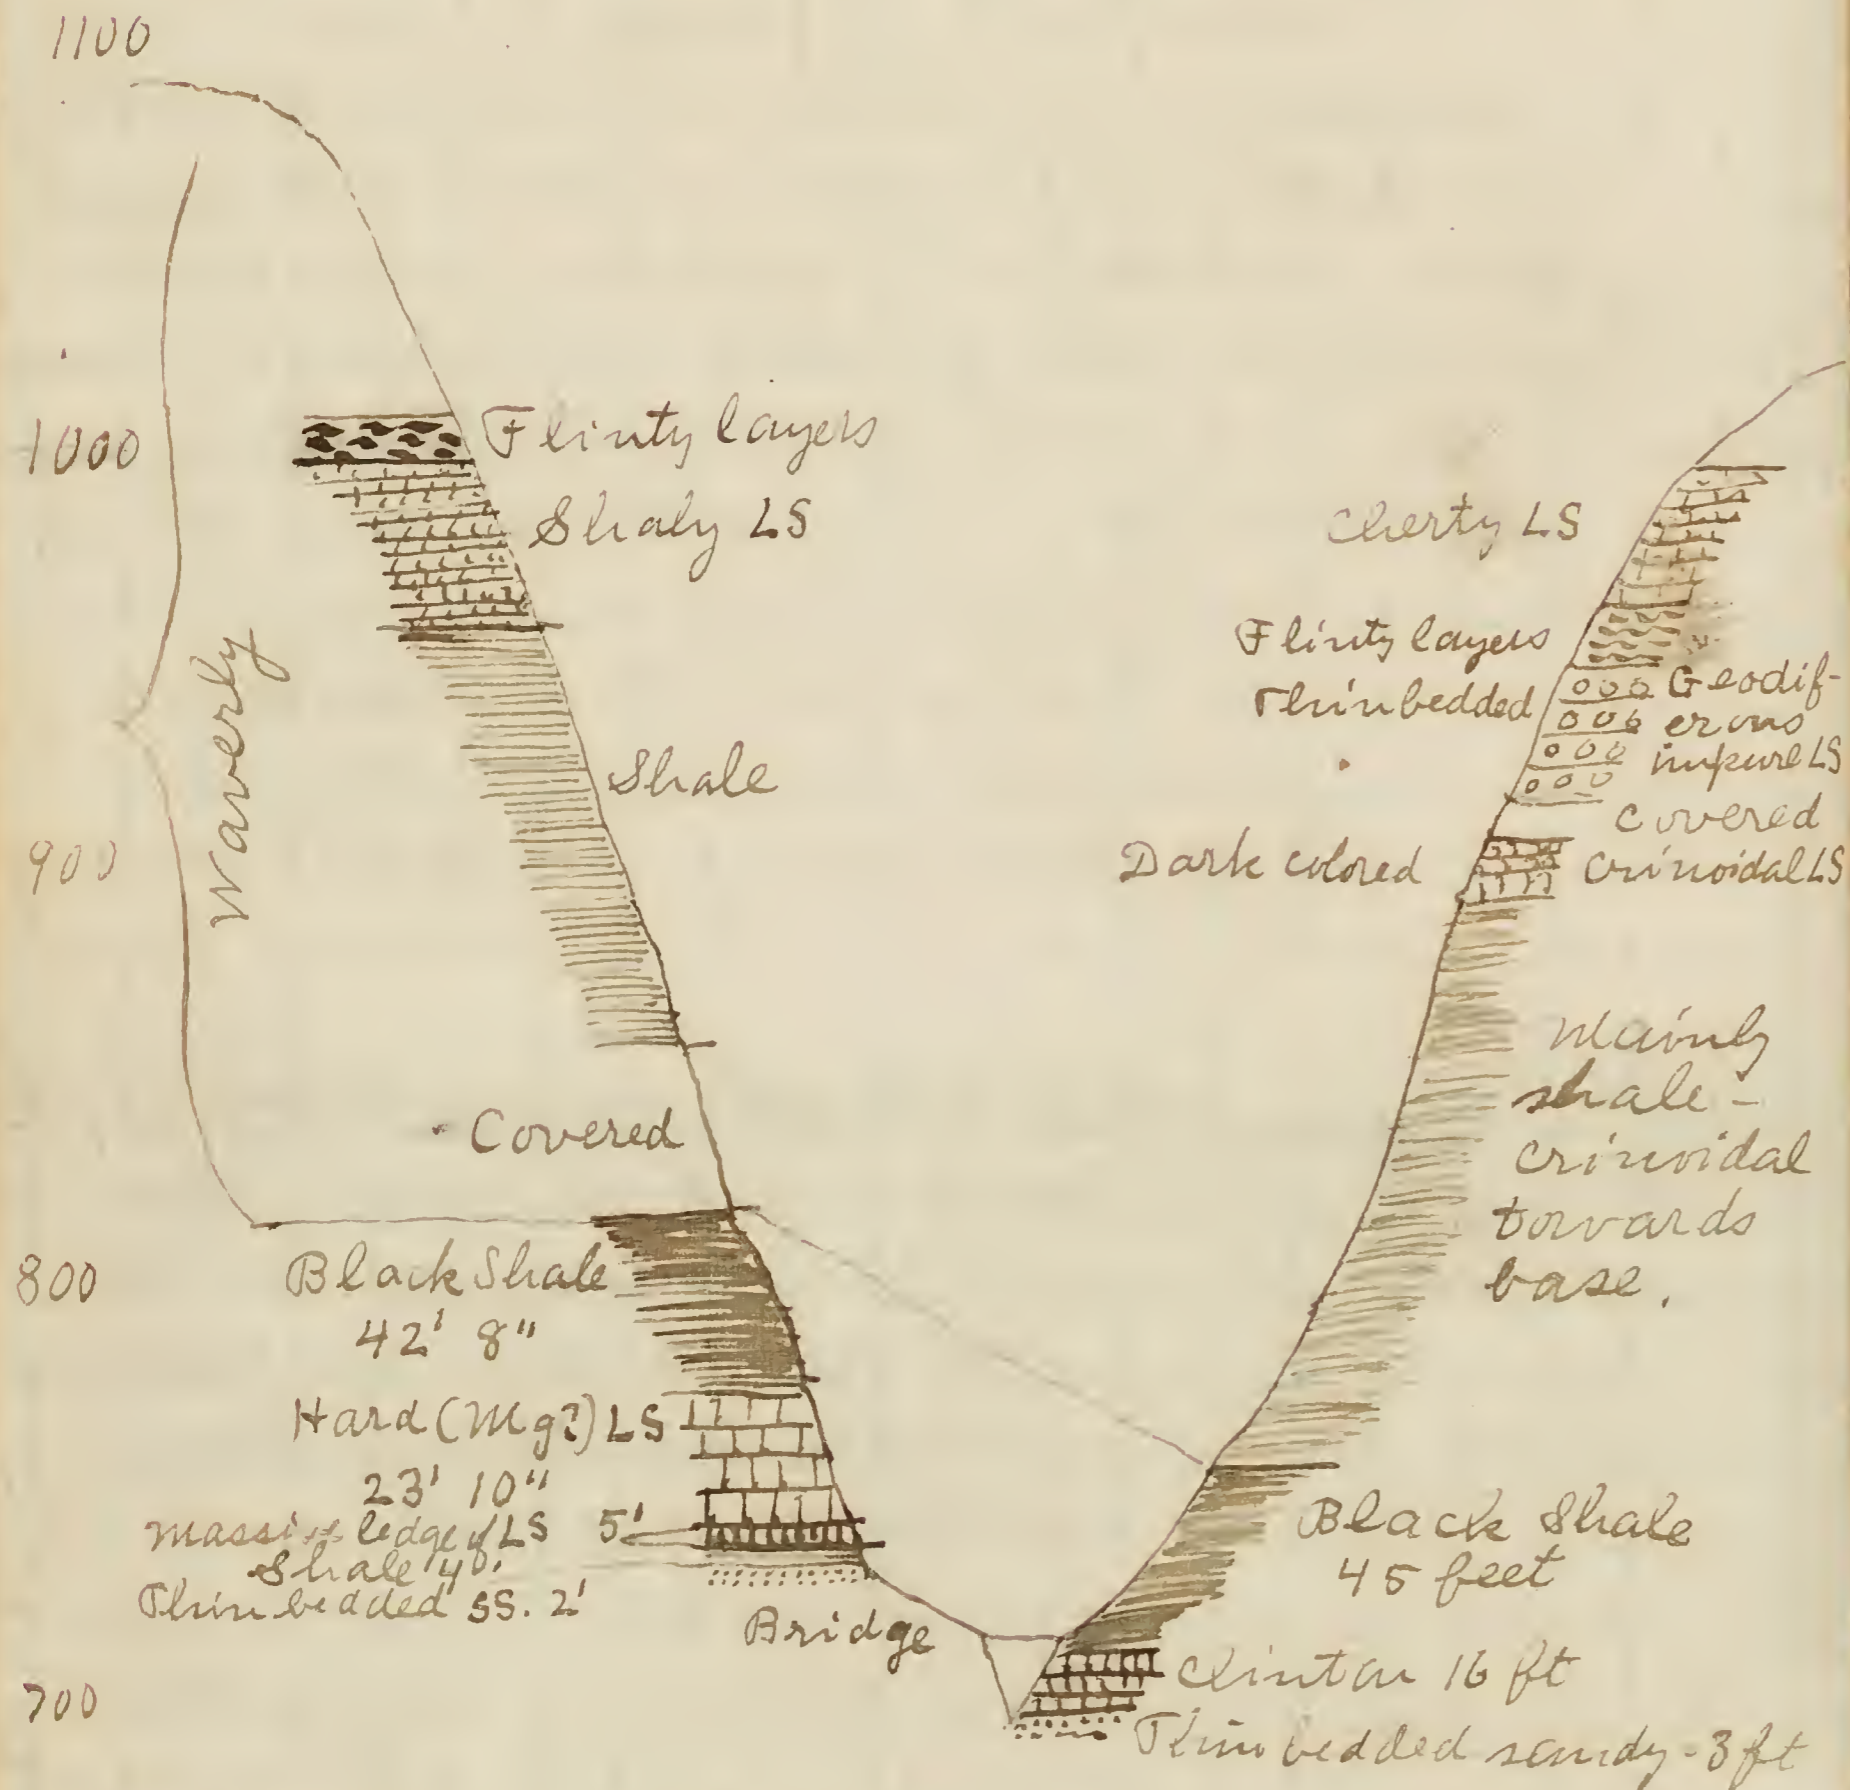 1100
1000
Flinty layers
Shaly LS
Waverly
Shale
900
Covered
800
Black Shale
42' 8"
Hard (Mg?) LS
23' 10"
Massive ledge of LS 5'
Shale 4'
Thin bedded SS. 2'
Bridge
700
Cherty LS
Flinty layers
Thin bedded
Geodif-
erous
impure LS
covered
Dark colored
Crinoidal LS
Mainly
shale -
crinoidal
towards
base.
Black Shale
45 feet
Clinton 16 ft
Thin bedded sandy - 3 ft